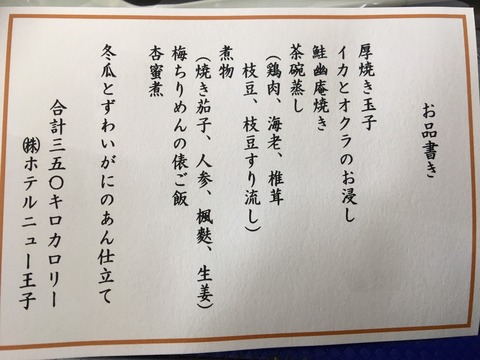 お品書き
厚焼き玉子
イカとオクラのお浸し
鮭幽庵焼き
茶碗蒸し
（鶏肉、海老、椎茸
枝豆、枝豆すり流し）
煮物
（焼き茄子、人参、楓麩、生姜）
梅ちりめんの俵ご飯
杏蜜煮
冬瓜とずわいがにのあん仕立て
合計三五〇キロカロリー
㈱ホテルニュー王子